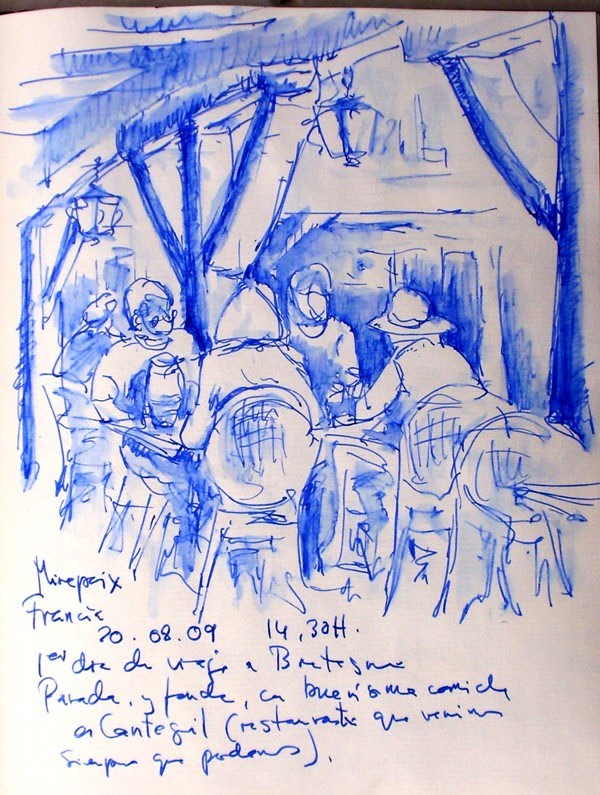 Mirepoix
Francia
20.08.09 14,30H.
1er dia de viaje a Bretagne
Parada, y fonda, con buenisima comida
en Cantegril (restaurante que venimos
siempre que podemos).